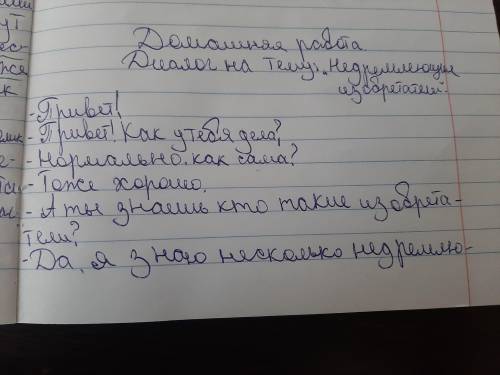 Домашняя работа
Диалог на тему: „Недремлющие
изобретатели.
- Привет!
- Привет! Как у тебя дела?
- Нормально. как сама?
- Тоже хорошо.
- А ты знаешь кто такие изобрета-
тели?
- Да, я знаю несколько недремлю-